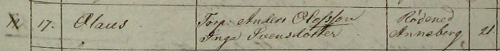 17. Claus Torp. Anders Olofsson Rödened
Inga Svensdotter Anneberg 21.